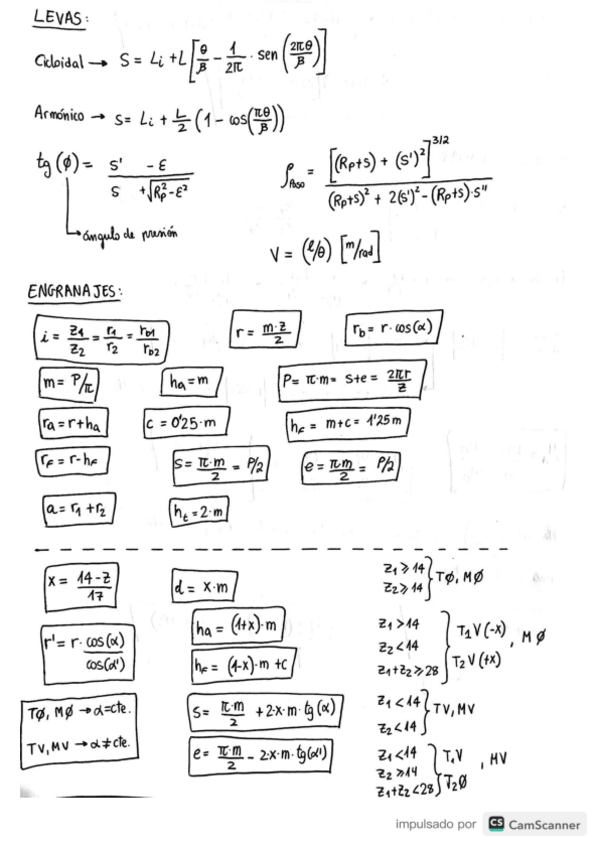 LEVAS:
Cicloidal → S = Li + L [θ/β - 1/2π · sen (2πθ/β)]
Armónico → S = Li + L/2 (1 - cos(πθ/β))
tg(ϕ) = (S' - ε) / (S + √(Rp² - ε²))
ángulo de presión
ρPaso = [(Rp+S) + (S')²]^3/2 / ((Rp+S)² + 2(S')² - (Rp+S)·S'')
V = (ℓ/θ) [m/rad]
ENGRANAJES:
i = z1/z2 = r1/r2 = rb1/rb2
r = m·z/2
rb = r·cos(α)
m = P/π
ha = m
P = π·m = s+e = 2πr/z
ra = r+ha
c = 0'25·m
hf = m+c = 1'25m
rf = r-hf
s = π·m/2 = P/2
e = πm/2 = P/2
a = r1+r2
ht = 2·m
x = 14-z/17
d = x·m
z1 ≥ 14
z2 ≥ 14 } TØ, MØ
r' = r·cos(α)/cos(α')
ha = (1+x)·m
hf = (1-x)·m + c
z1 > 14
z2 < 14
z1+z2 ≥ 28 } T1V(-x) T2V(+x) , MØ
TØ, MØ → α = cte.
TV, MV → α ≠ cte.
s = π·m/2 + 2·x·m·tg(α)
e = π·m/2 - 2·x·m·tg(α')
z1 < 14
z2 < 14 } TV, MV
z1 < 14
z2 ≥ 14
z1+z2 < 28 } T1V T2Ø , MV
impulsado por CS CamScanner